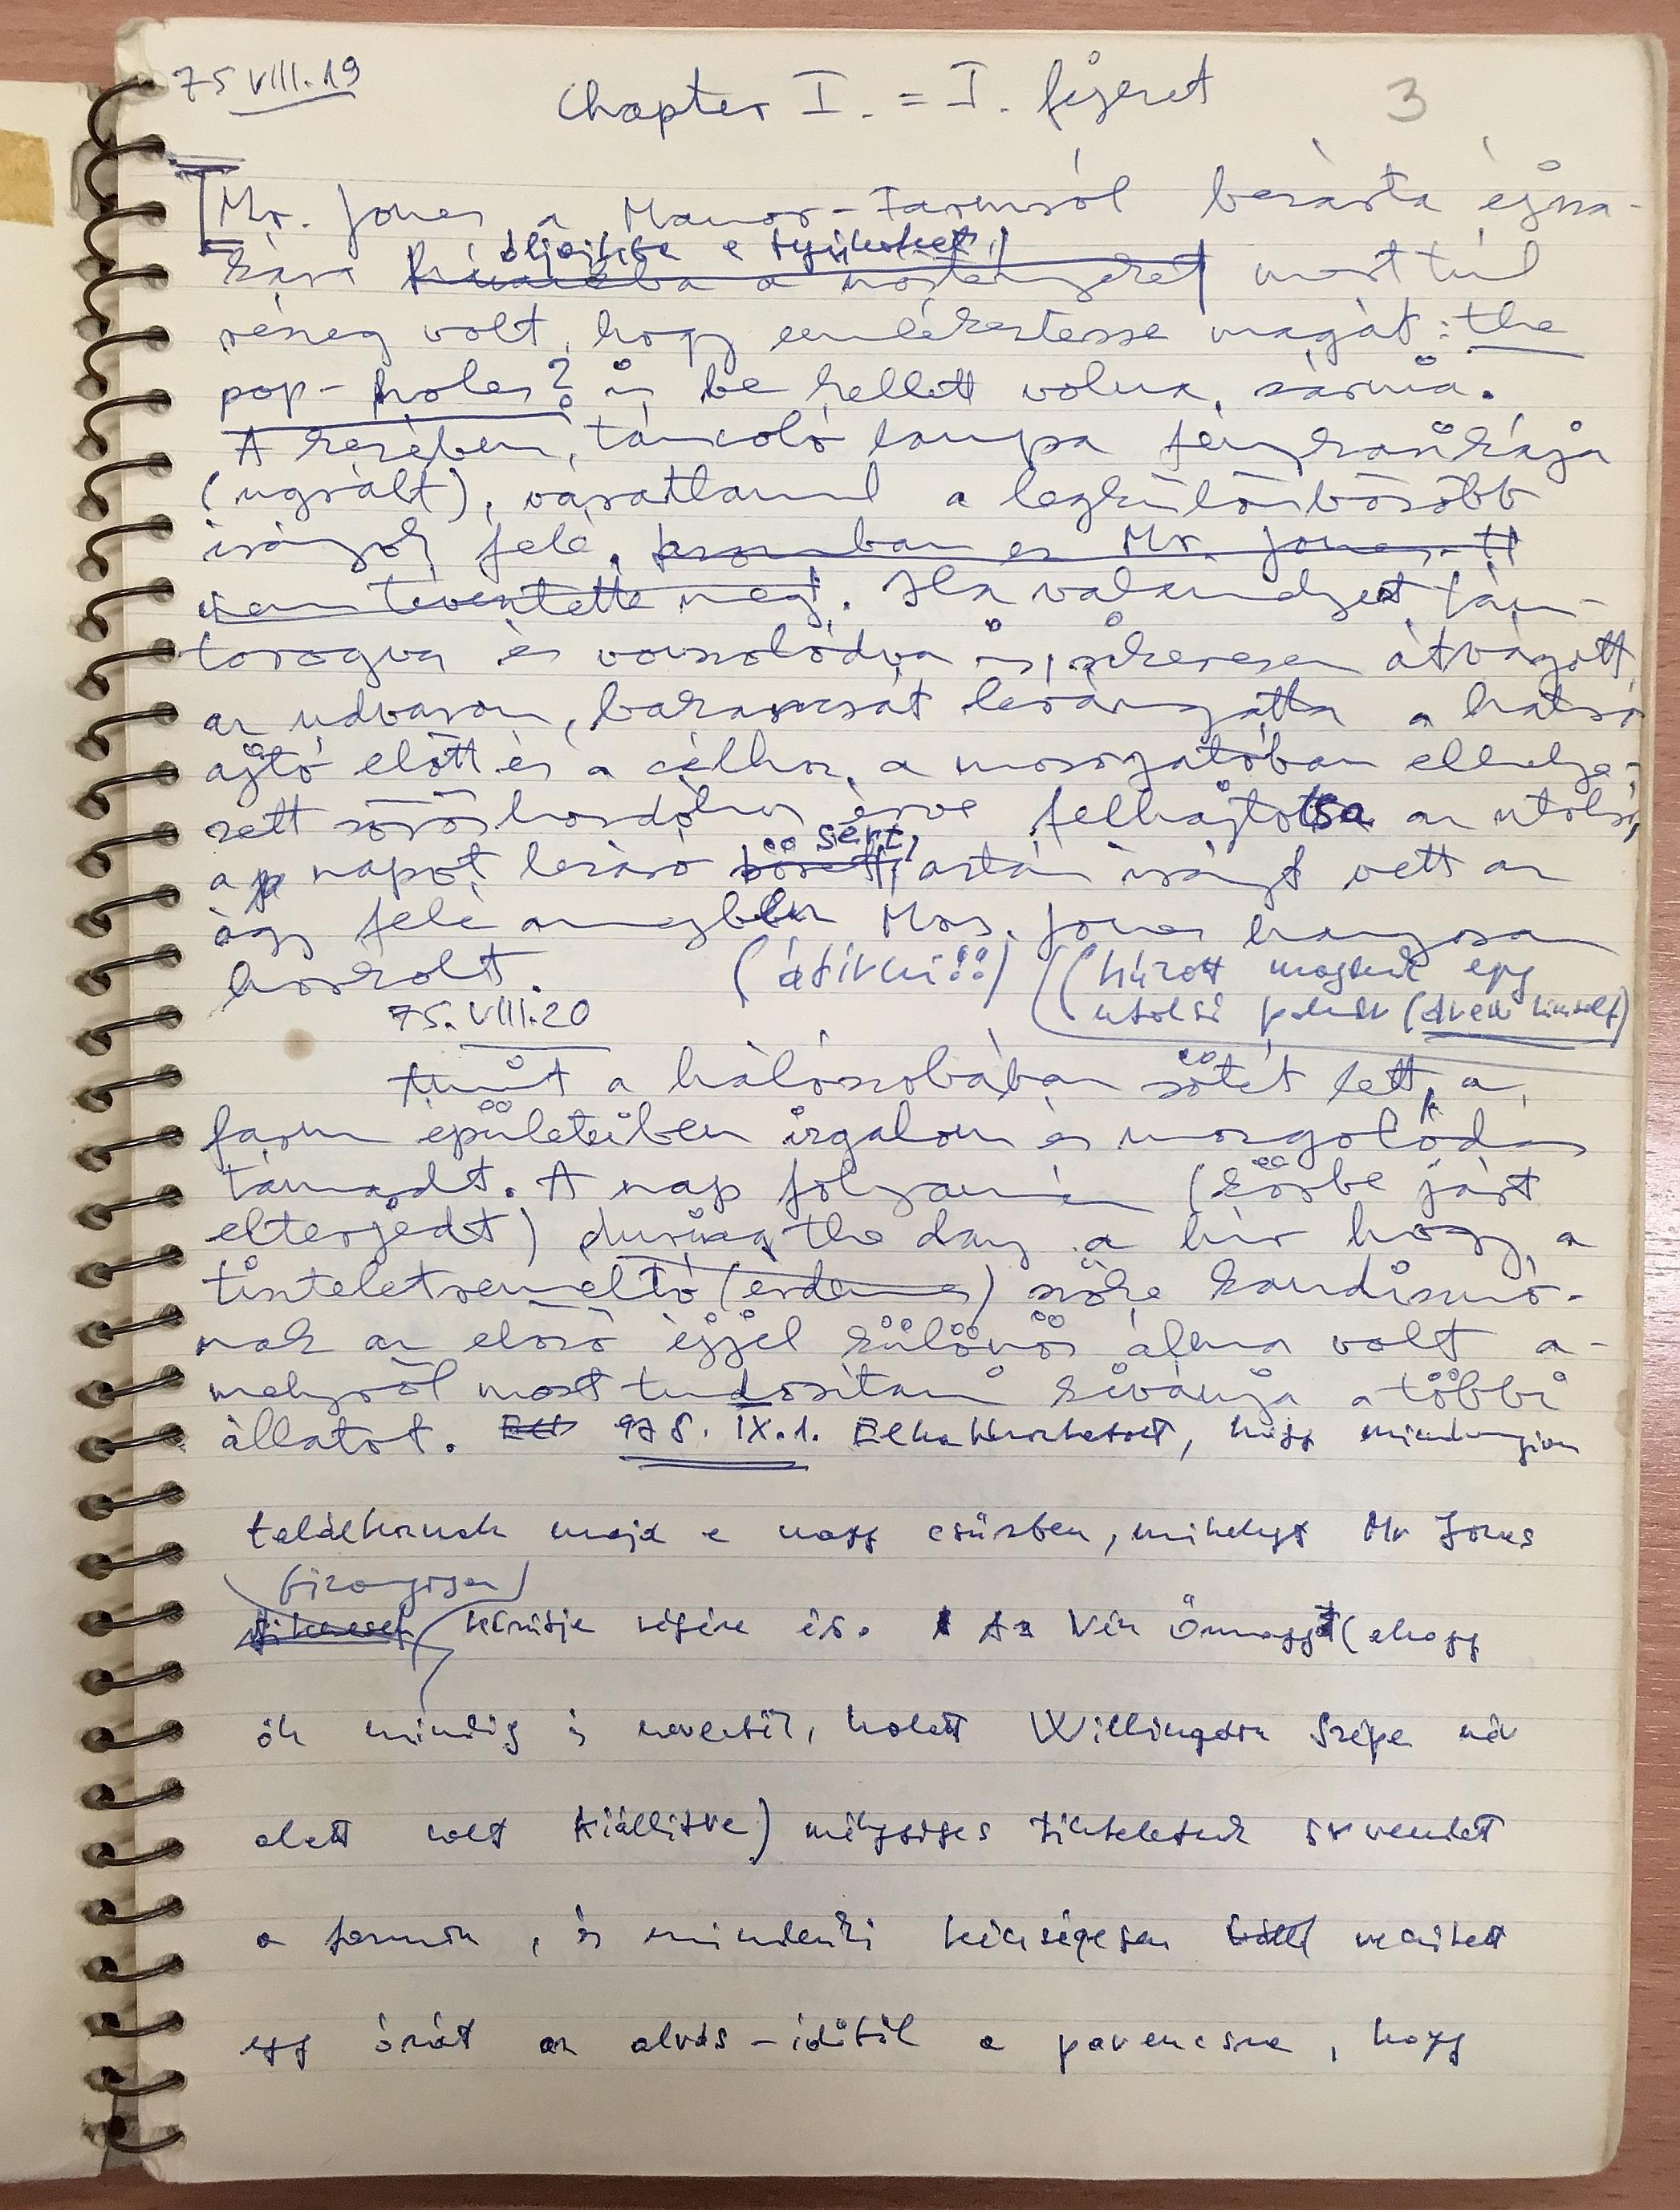 75 VIII. 19
Chapter I. = I. fejezet 3
Mr. Jones a Manor-Farmról bezárta éjsza-
kára óljaikba a tyúkokat, mert túl
részeg volt, hogy emlékeztesse magát: the
pop-holes? is be kellett volna zárnia.
A kezében táncoló lámpa fénykarikája
(ugrált), váratlanul a legkülönbözőbb
irányok felé, azonban ez Mr. Jones-t
nem tévesztette meg. Ha valamelyest tán-
torogva és vonszolódva is, sikeresen átvágott
az udvaron, bakancsát lerángatta a hátsó
ajtó előtt és a célhoz, a mosogatóban elhelye-
zett söröshordóhoz érve felhajtotta az utolsó,
a napot lezáró sört, aztán irányt vett az
ágy felé amelyben Mrs. Jones hangosan
horkolt. (átírni!!) (húzott magának egy
utolsó pohár (drew himself)
75. VIII. 20
Amint a hálószobában sötét lett, a
farm épületeiben izgalom és mozgolódás
támadt. A nap folyamán (körbe járt
elterjedt) during the day a hír hogy a
tiszteletreméltó (érdemes) szőke kandisznó-
nak az előző éjjel különös álma volt a-
melyről most tudosítani kívánja a többi
állatot. 975. IX. 1. Elhatároztatott, hogy mindannyian
találkoznak majd a nagy csűrben, mihelyt Mr Jones
(bizonyosan)
sikeresen körútja végére ér. Az Vén Őrnagyot (ahogy
őt mindig is nevezték, holott Willingdon Szépe név
alatt volt kiállítva) mélységes tiszteletnek örvendett
a farmon, és mindenki készségesen veszített
egy órát az alvás-időtől a parancsra, hogy